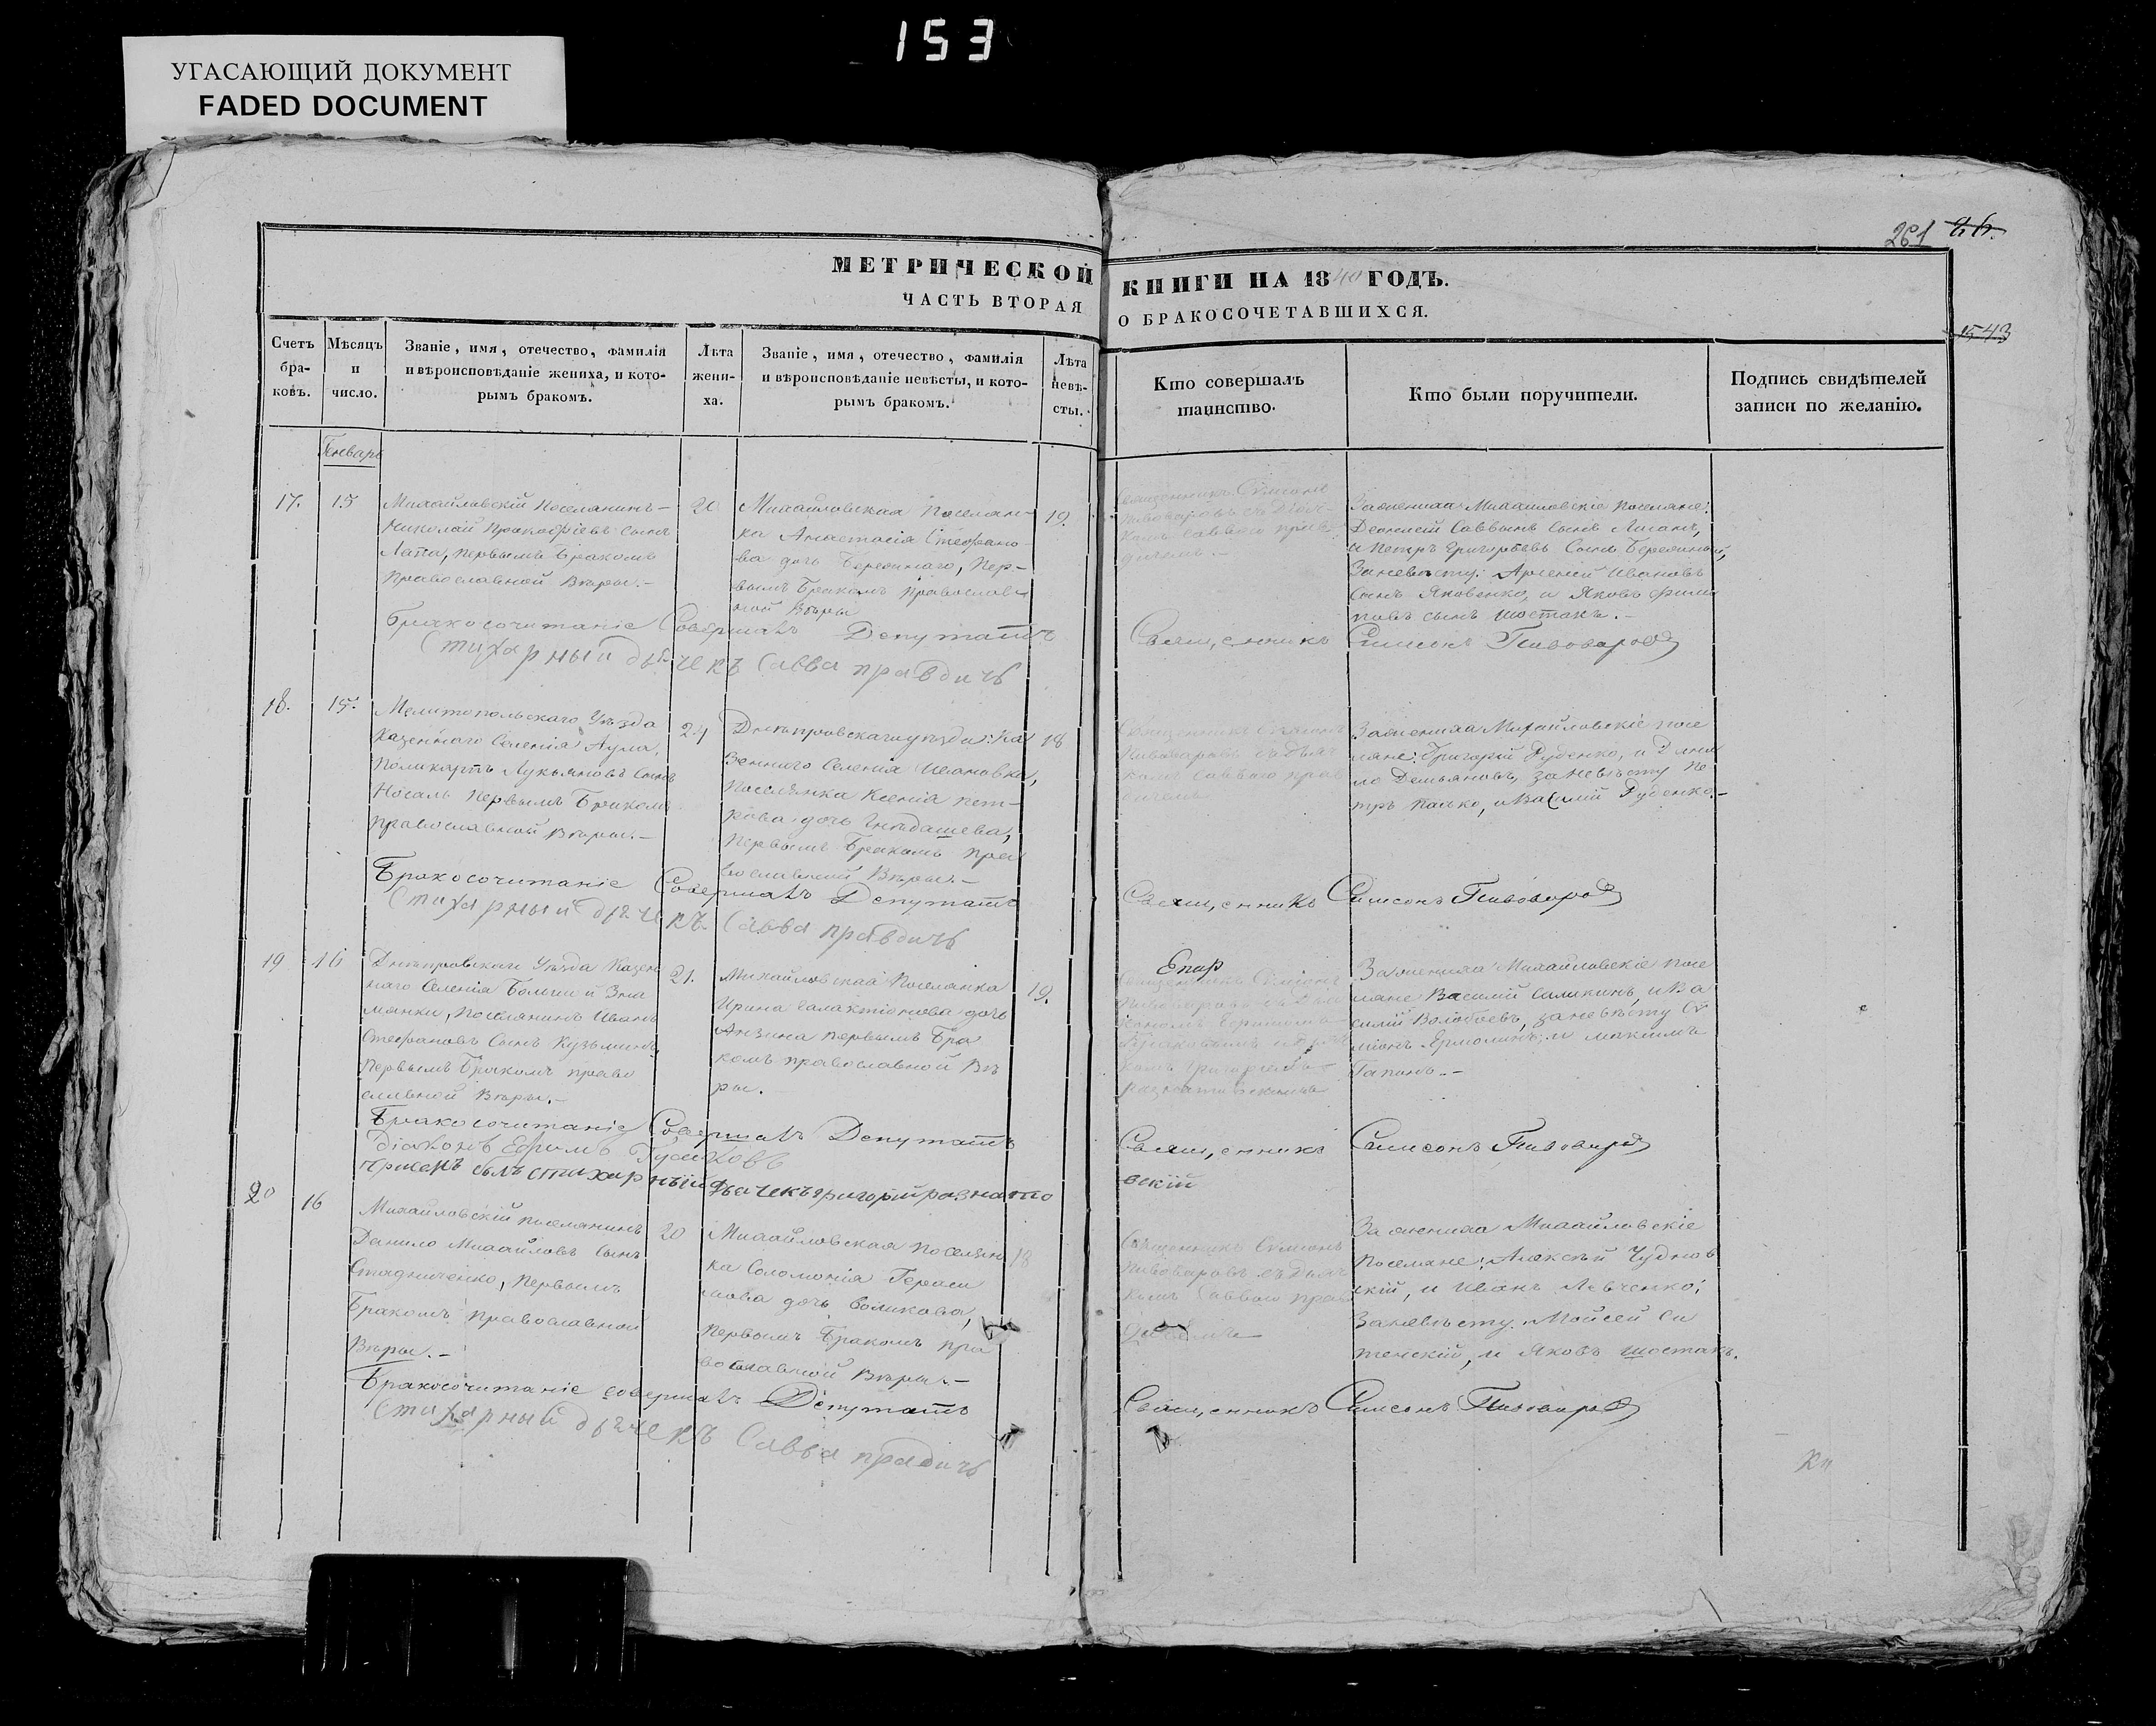 153
УГАСАЮЩИЙ ДОКУМЕНТ
FADED DOCUMENT
261
МЕТРИЧЕСКОЙ КНИГИ НА 1840 ГОДЪ.
ЧАСТЬ ВТОРАЯ О БРАКОСОЧЕТАВШИХСЯ.
Счетъ браковъ.
Мѣсяцъ и число.
Званіе, имя, отечество, фамилія
и вѣроисповѣданіе жениха, и кото-
рымъ бракомъ.
Лѣта жени-ха.
Званіе, имя, отечество, фамилія
и вѣроисповѣданіе невѣсты, и кото-
рымъ бракомъ.
Лѣта невѣ-сты.
Кто совершалъ
таинство.
Кто были поручители.
Подпись свидѣтелей
записи по желанію.
Генварь
17.
15
Михайловскій Поселянинъ
Николай Прокофіевъ сынъ
Лапа, первымъ бракомъ
православной Вѣры.-
20
Михайловская Поселян-
ка Анастасія Стефано-
ва дочь Бережнаго, пер-
вымъ бракомъ православ-
ной Вѣры
19.
Священникъ Сѵмеонъ
Пивоваровъ съ дьяч-
комъ Саввою прав-
дичемъ.-
Зажениха Михайловскіе поселяне:
Саввинъ сынъ
и Петръ Григорьевъ сынъ Бережный,
Заневѣсту: Арсеній Ивановъ
сынъ Яковенко, и Яковъ Фили
повъ сынъ Шостакъ.-
Бракосочитаніе Совершалъ Депутатъ Священникъ Симеонъ Пивоваровъ
Стихарный дьячекъ Савва правдичь
18.
15.
Мелитопольскаго Уѣзда
Казеннаго Селенія
Поликарпъ Лукьяновъ Сынъ
Носаль первымъ Бракомъ
православной Вѣры.-
24
Днѣпровскаго уѣзда: Ка
зеннаго Селенія Ивановка,
Поселянка Ксенія Пет-
рова дочь
Первымъ Бракомъ пра
вославной Вѣры.-
18
Священникъ Сѵмеонъ
Пивоваровъ съ дьяч
комъ Саввою прав
дичемъ
Зажениха Михайловскіе посе
ляне: Григорій Руденко, и Дани
ло Демьяновъ, заневѣсту Пе
тръ и Василій Руденко.-
Бракосочитаніе Совершалъ Депутатъ Священникъ Симеонъ Пивоваровъ
Стихарный дьячекъ Савва правдичь
19
16
Днѣпровскаго Уѣзда Казен
наго Селенія Большой Зна
менки, Поселянинъ Иванъ
Стефановъ Сынъ Кузьминъ
Первымъ Бракомъ право
славной Вѣры.-
21.
Михайловская Поселянка
Ирина Галактіонова дочь
первымъ Бра
комъ православной Вѣ
ры.
19.
Священникъ Сѵмеонъ
Зажениха Михайловскіе посе
ляне Василій и Ва
силій Волобоевъ, заневѣсту Сѵ
меонъ Ермолинъ, и Максимъ
Гапонъ.-
Бракосочитаніе Совершалъ Депутатъ Священникъ Симеонъ Пивоваровъ
діаконъ Ефремъ
причемъ былъ стихарный дьячекъ григорій разнатовскій
20
16
Михайловскій поселянинъ
Данило Михайловъ Сынъ
Стадниченко, первымъ
Бракомъ православной
Вѣры.-
20
Михайловская Поселян
ка Соломонія Гераси
мова дочь Воликова,
первымъ Бракомъ пра
вославной Вѣры.-
18
Священникъ Сѵмеонъ
Пивоваровъ съ дьяч
комъ Саввою прав
Зажениха Михайловскіе
поселяне: Алексѣй Чуднов
скій, и Иванъ Левченко;
Заневѣсту Мойсей Си
тенскій, и Яковъ Шостакъ.
Бракосочитаніе совершалъ Депутатъ Священникъ Симеонъ Пивоваровъ
Стихарный дьячекъ Савва правдичь